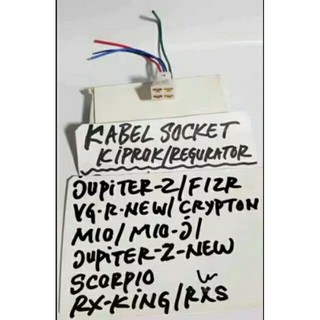 KABEL SOCKET
KiPROK/REGURATOR
JUPiTER-Z/FIZR
VG-R-NEW/CRYPTON
MIO/MIO-J/
JUPITER-Z-NEW
SCORPIO
RX-KING/RXS